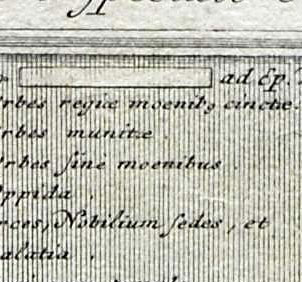 ad Ep.
Urbes regiæ moenibꝫ cinctæ
Urbes munitæ.
Urbes ſine moenibus
Oppida.
Arces, Nobilium ſedes, et
Palatia.